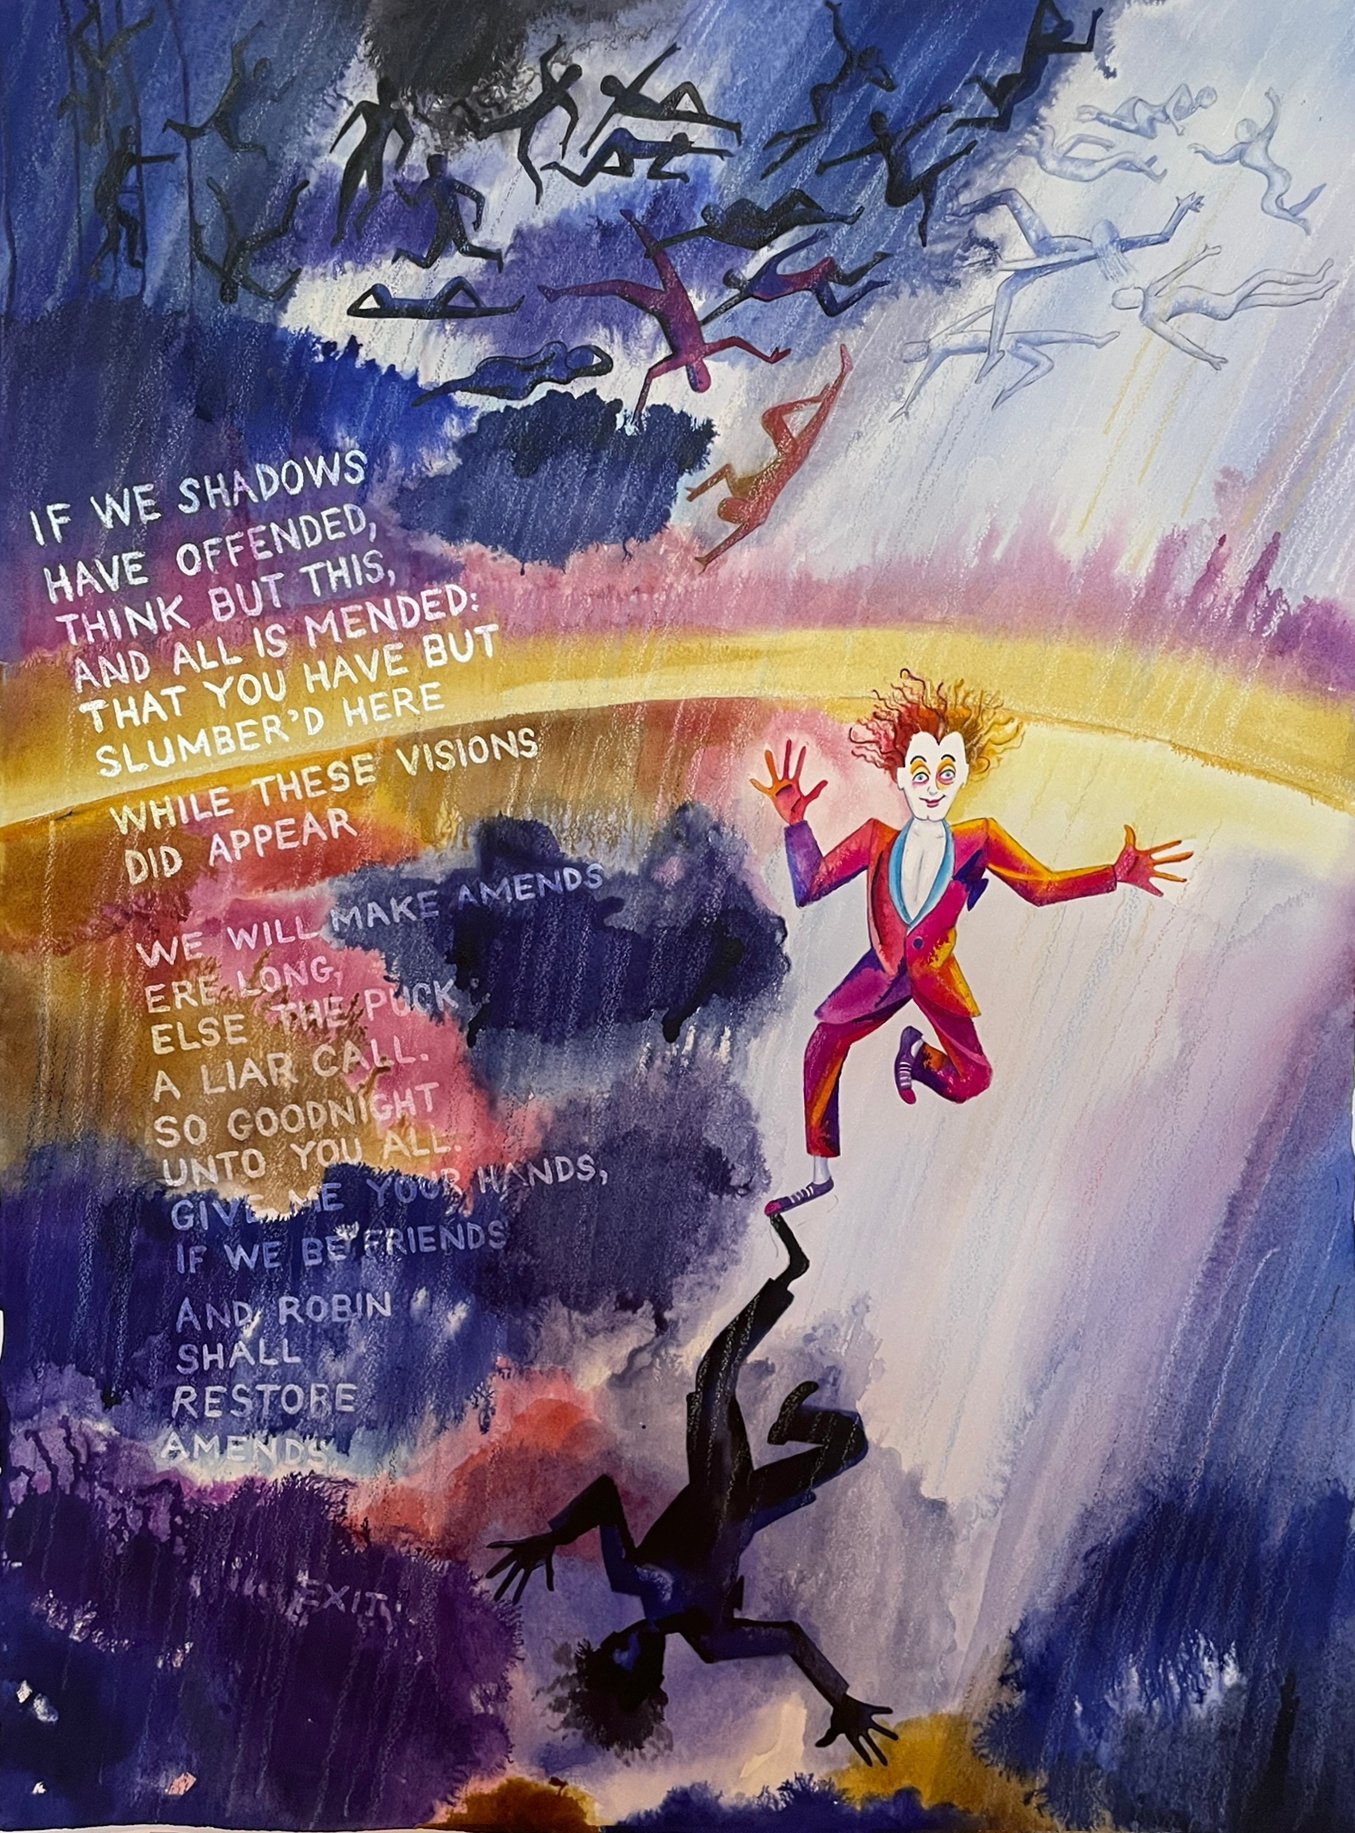 IF WE SHADOWS
HAVE OFFENDED,
THINK BUT THIS,
AND ALL IS MENDED:
THAT YOU HAVE BUT
SLUMBER'D HERE
WHILE THESE VISIONS
DID APPEAR
WE WILL MAKE AMENDS
ERE LONG,
ELSE THE PUCK
A LIAR CALL.
SO GOODNIGHT
UNTO YOU ALL.
GIVE ME YOUR HANDS,
IF WE BE FRIENDS
AND ROBIN
SHALL
RESTORE
AMENDS.
EXIT.